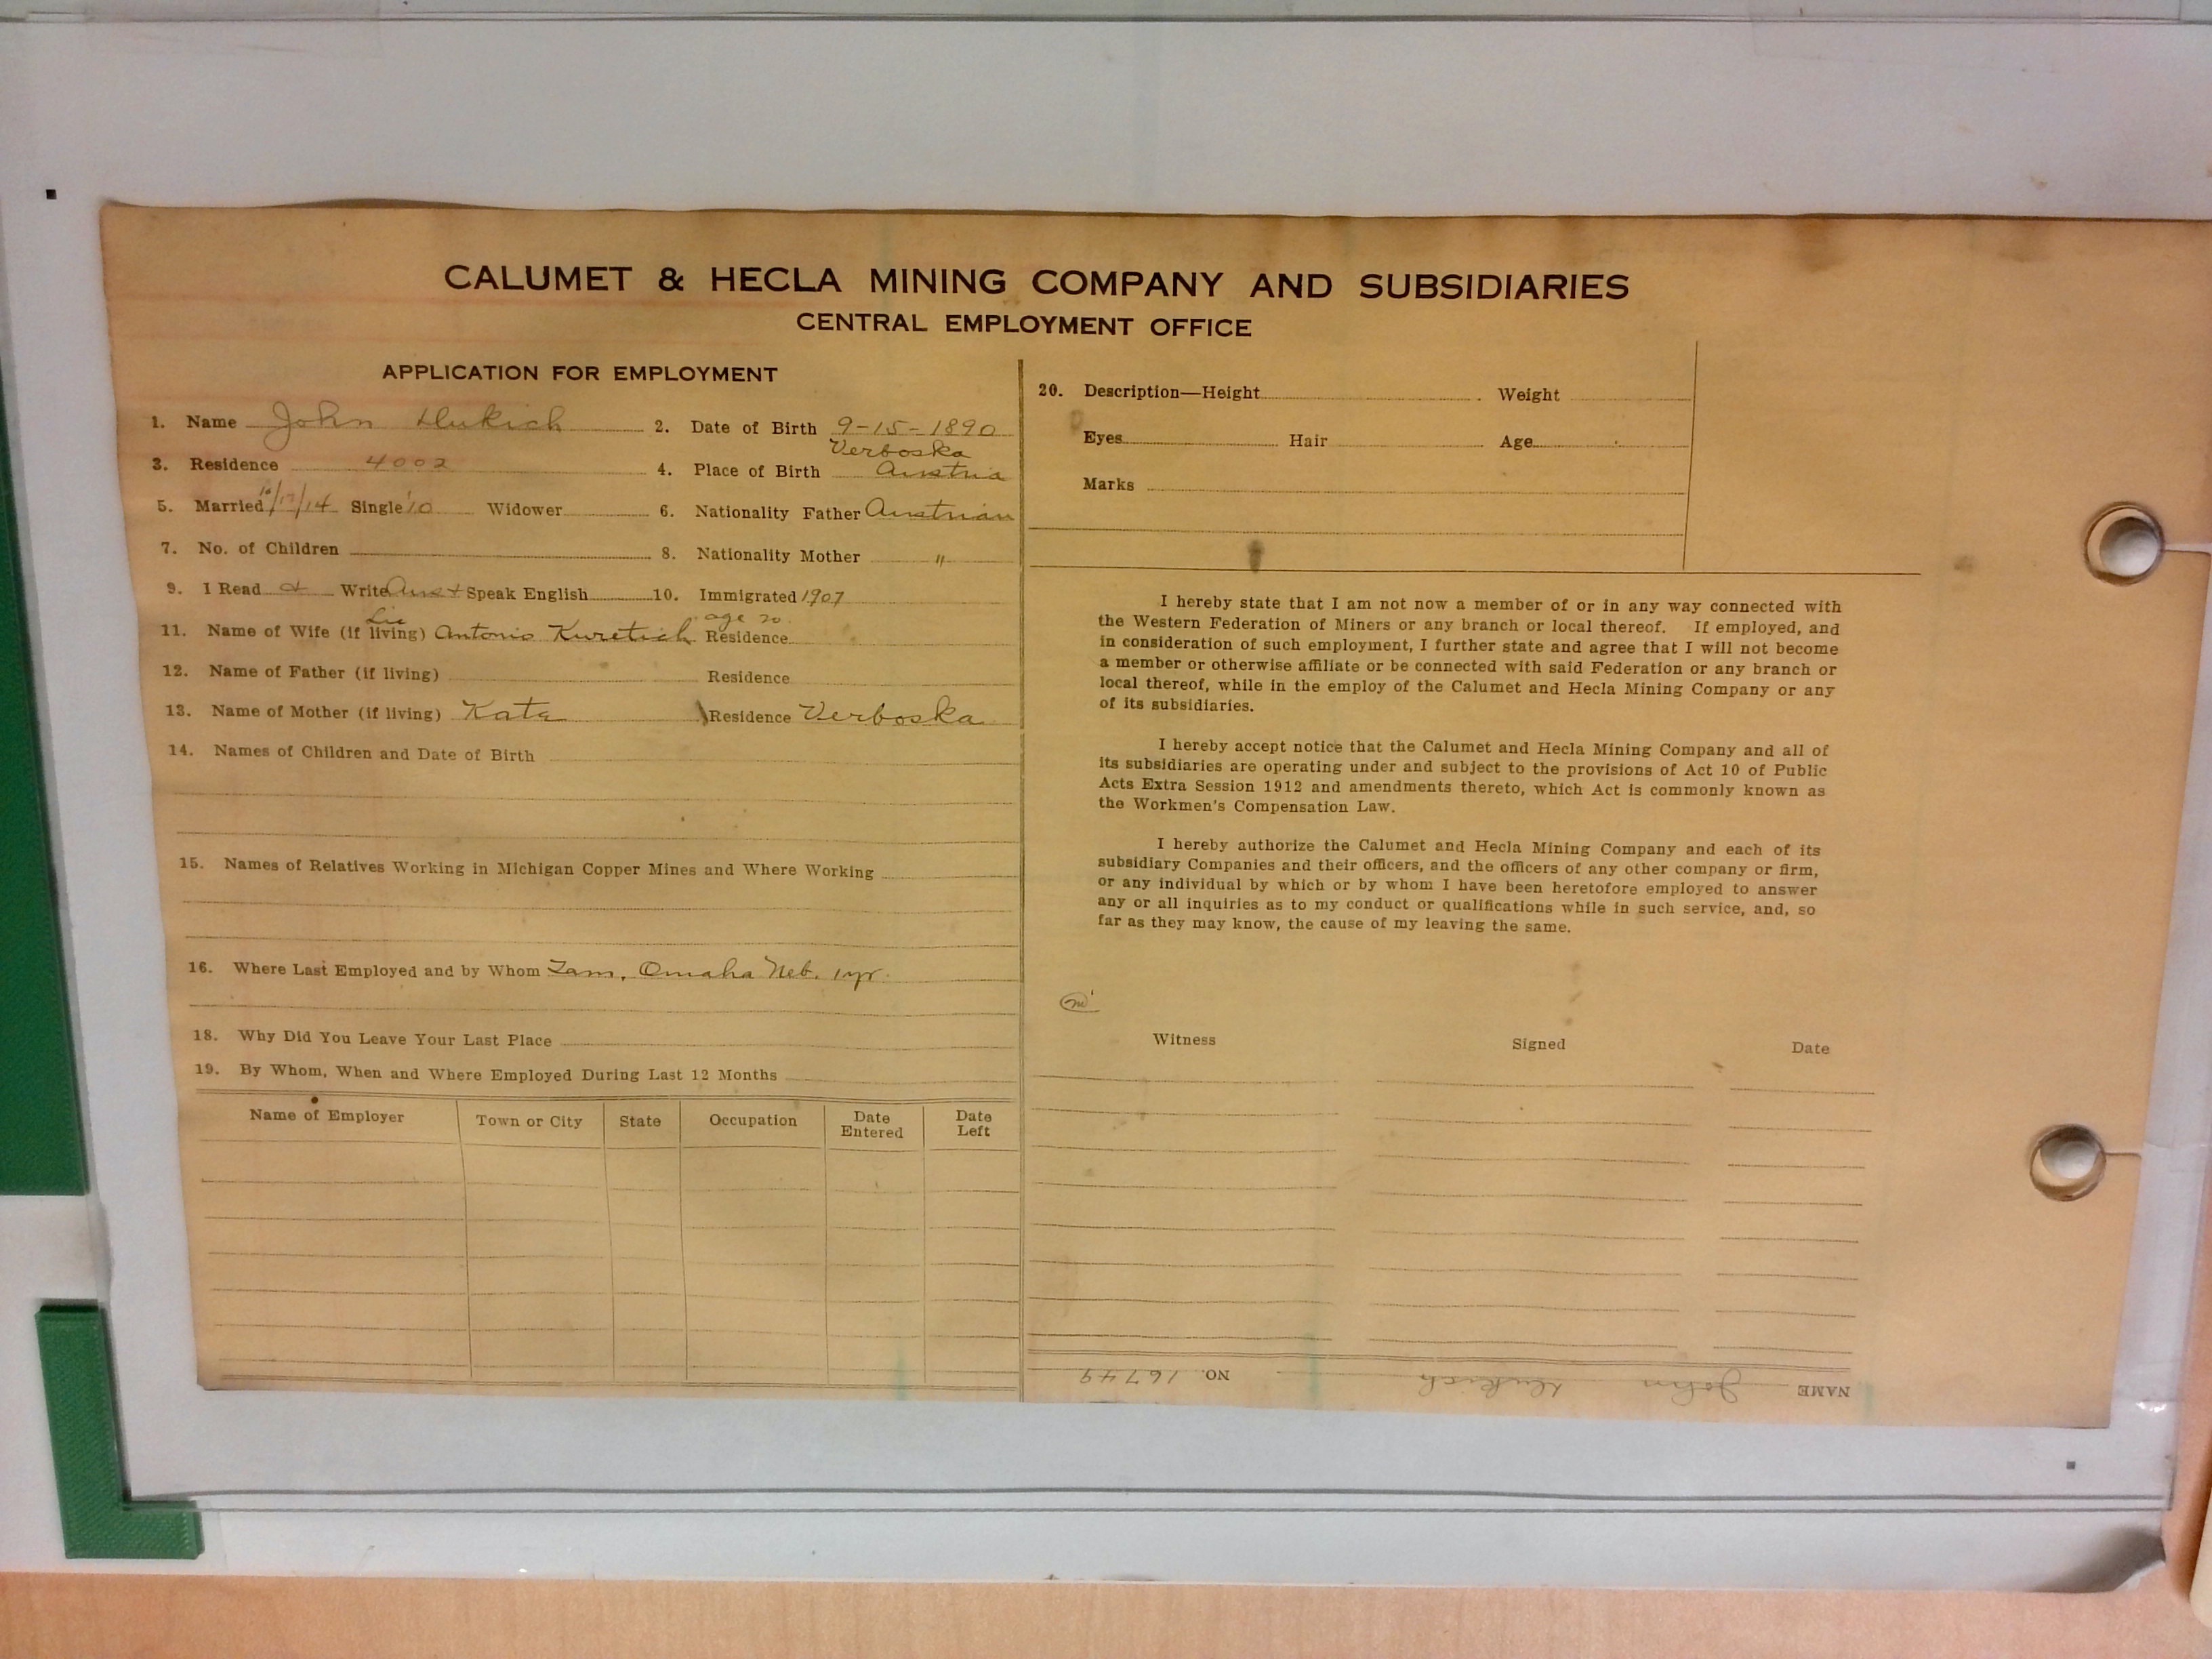 CALUMET & HECLA MINING COMPANY AND SUBSIDIARIES
CENTRAL EMPLOYMENT OFFICE
APPLICATION FOR EMPLOYMENT
1. Name John
2. Date of Birth 9-15-1890
3. Residence 4002
4. Place of Birth Verboska Austria
5. Married /14 Single '10 Widower
6. Nationality Father Austrian
7. No. of Children
8. Nationality Mother "
9. I Read & Write Aust Speak English
10. Immigrated 1907
11. Name of Wife (if living) Antonio Kuretich age 20 Residence
12. Name of Father (if living) Residence
13. Name of Mother (if living) Kata Residence Verboska
14. Names of Children and Date of Birth
15. Names of Relatives Working in Michigan Copper Mines and Where Working
16. Where Last Employed and by Whom Omaha Neb. 1 yr.
18. Why Did You Leave Your Last Place
19. By Whom, When and Where Employed During Last 12 Months
Name of Employer Town or City State Occupation Date Entered Date Left
20. Description—Height Weight
Eyes Hair Age
Marks
I hereby state that I am not now a member of or in any way connected with
the Western Federation of Miners or any branch or local thereof. If employed, and
in consideration of such employment, I further state and agree that I will not become
a member or otherwise affiliate or be connected with said Federation or any branch or
local thereof, while in the employ of the Calumet and Hecla Mining Company or any
of its subsidiaries.
I hereby accept notice that the Calumet and Hecla Mining Company and all of
its subsidiaries are operating under and subject to the provisions of Act 10 of Public
Acts Extra Session 1912 and amendments thereto, which Act is commonly known as
the Workmen's Compensation Law.
I hereby authorize the Calumet and Hecla Mining Company and each of its
subsidiary Companies and their officers, and the officers of any other company or firm,
or any individual by which or by whom I have been heretofore employed to answer
any or all inquiries as to my conduct or qualifications while in such service, and, so
far as they may know, the cause of my leaving the same.
Witness Signed Date
NAME John NO. 16749